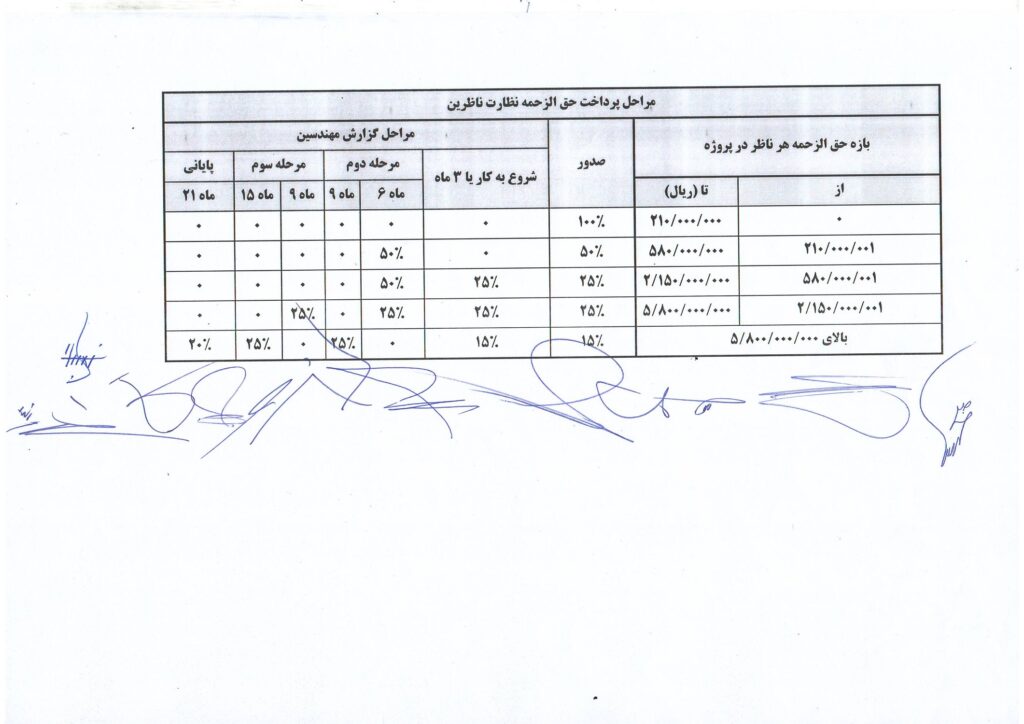 مراحل پرداخت حق الزحمه نظارت ناظرین
بازه حق الزحمه هر ناظر در پروژه صدور مراحل گزارش مهندسین
شروع به کار یا ۳ ماه مرحله دوم مرحله سوم پایانی
از تا (ریال) ۶ ماه ۹ ماه ۹ ماه ۱۵ ماه ۲۱ ماه
۰ ۲۱۰/۰۰۰/۰۰۰ ۱۰۰٪ ۰ ۰ ۰ ۰ ۰ ۰
۲۱۰/۰۰۰/۰۰۱ ۵۸۰/۰۰۰/۰۰۰ ۵۰٪ ۰ ۵۰٪ ۰ ۰ ۰ ۰
۵۸۰/۰۰۰/۰۰۱ ۲/۱۵۰/۰۰۰/۰۰۰ ۲۵٪ ۲۵٪ ۵۰٪ ۰ ۰ ۰ ۰
۲/۱۵۰/۰۰۰/۰۰۱ ۵/۸۰۰/۰۰۰/۰۰۰ ۲۵٪ ۲۵٪ ۲۵٪ ۰ ۲۵٪ ۰ ۰
بالای ۵/۸۰۰/۰۰۰/۰۰۰ ۱۵٪ ۱۵٪ ۰ ۲۵٪ ۰ ۲۵٪ ۲۰٪